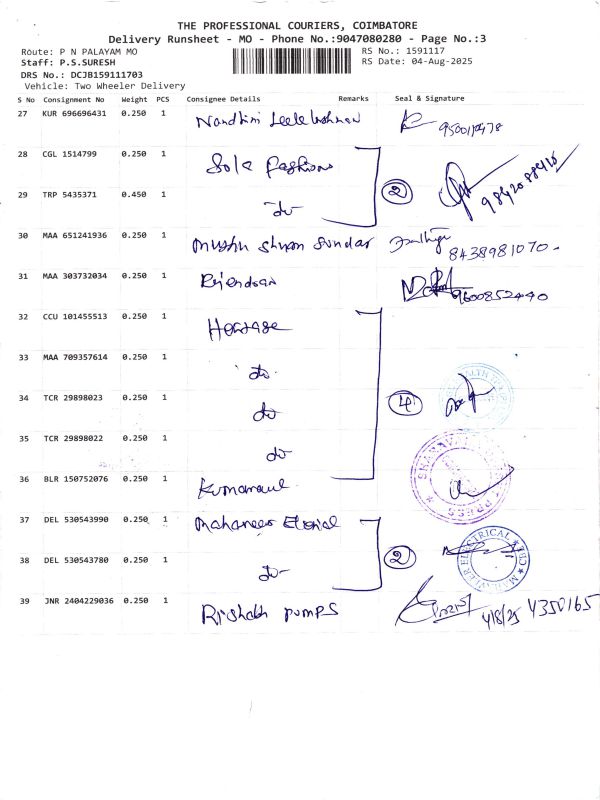 THE PROFESSIONAL COURIERS, COIMBATORE
Delivery Runsheet - MO - Phone No.:9047080280 - Page No.:3
Route: P N PALAYAM MO
RS No.: 1591117
Staff: P.S.SURESH
RS Date: 04-Aug-2025
DRS No.: DCJB159111703
Vehicle: Two Wheeler Delivery
S No Consignment No Weight PCS Consignee Details Remarks Seal & Signature
27 KUR 696696431 0.250 1 Nandhini
28 CGL 1514799 0.250 1 Sole fashions
29 TRP 5435371 0.450 1 do
2
9842088410
30 MAA 651241936 0.250 1 sundar
8438981070
31 MAA 303732034 0.250 1
9600852440
32 CCU 101455513 0.250 1
33 MAA 709357614 0.250 1 do
34 TCR 29898023 0.250 1 do
4
35 TCR 29898022 0.250 1 do
36 BLR 150752076 0.250 1
PRESS
37 DEL 530543990 0.250 1
38 DEL 530543780 0.250 1 do
2
ELECTRICAL
39 JNR 2404229036 0.250 1 Rishabh pumps
4/8/25 4350165